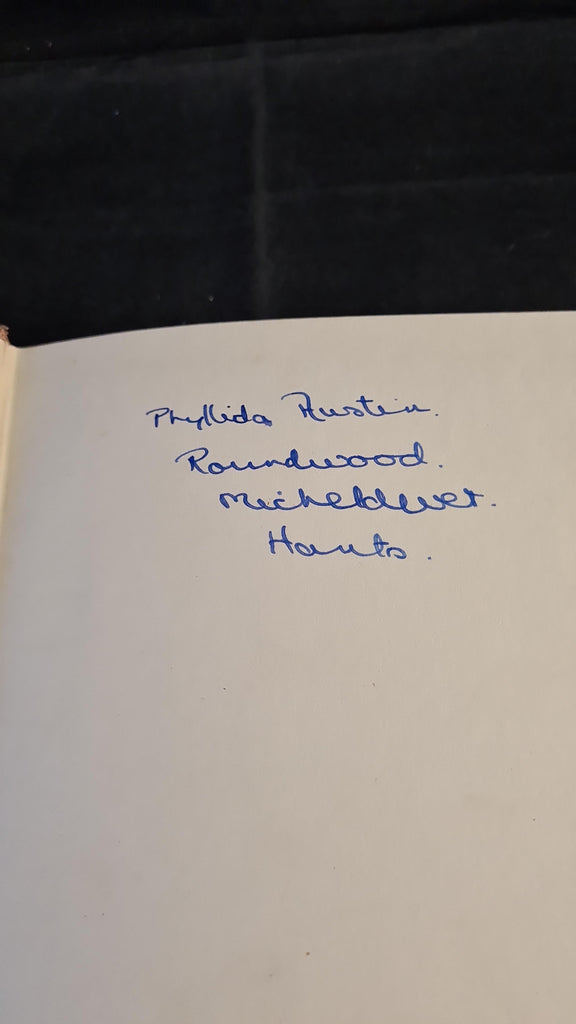 Phyllida Austin.
Roundwood.
Micheldever.
Hants.